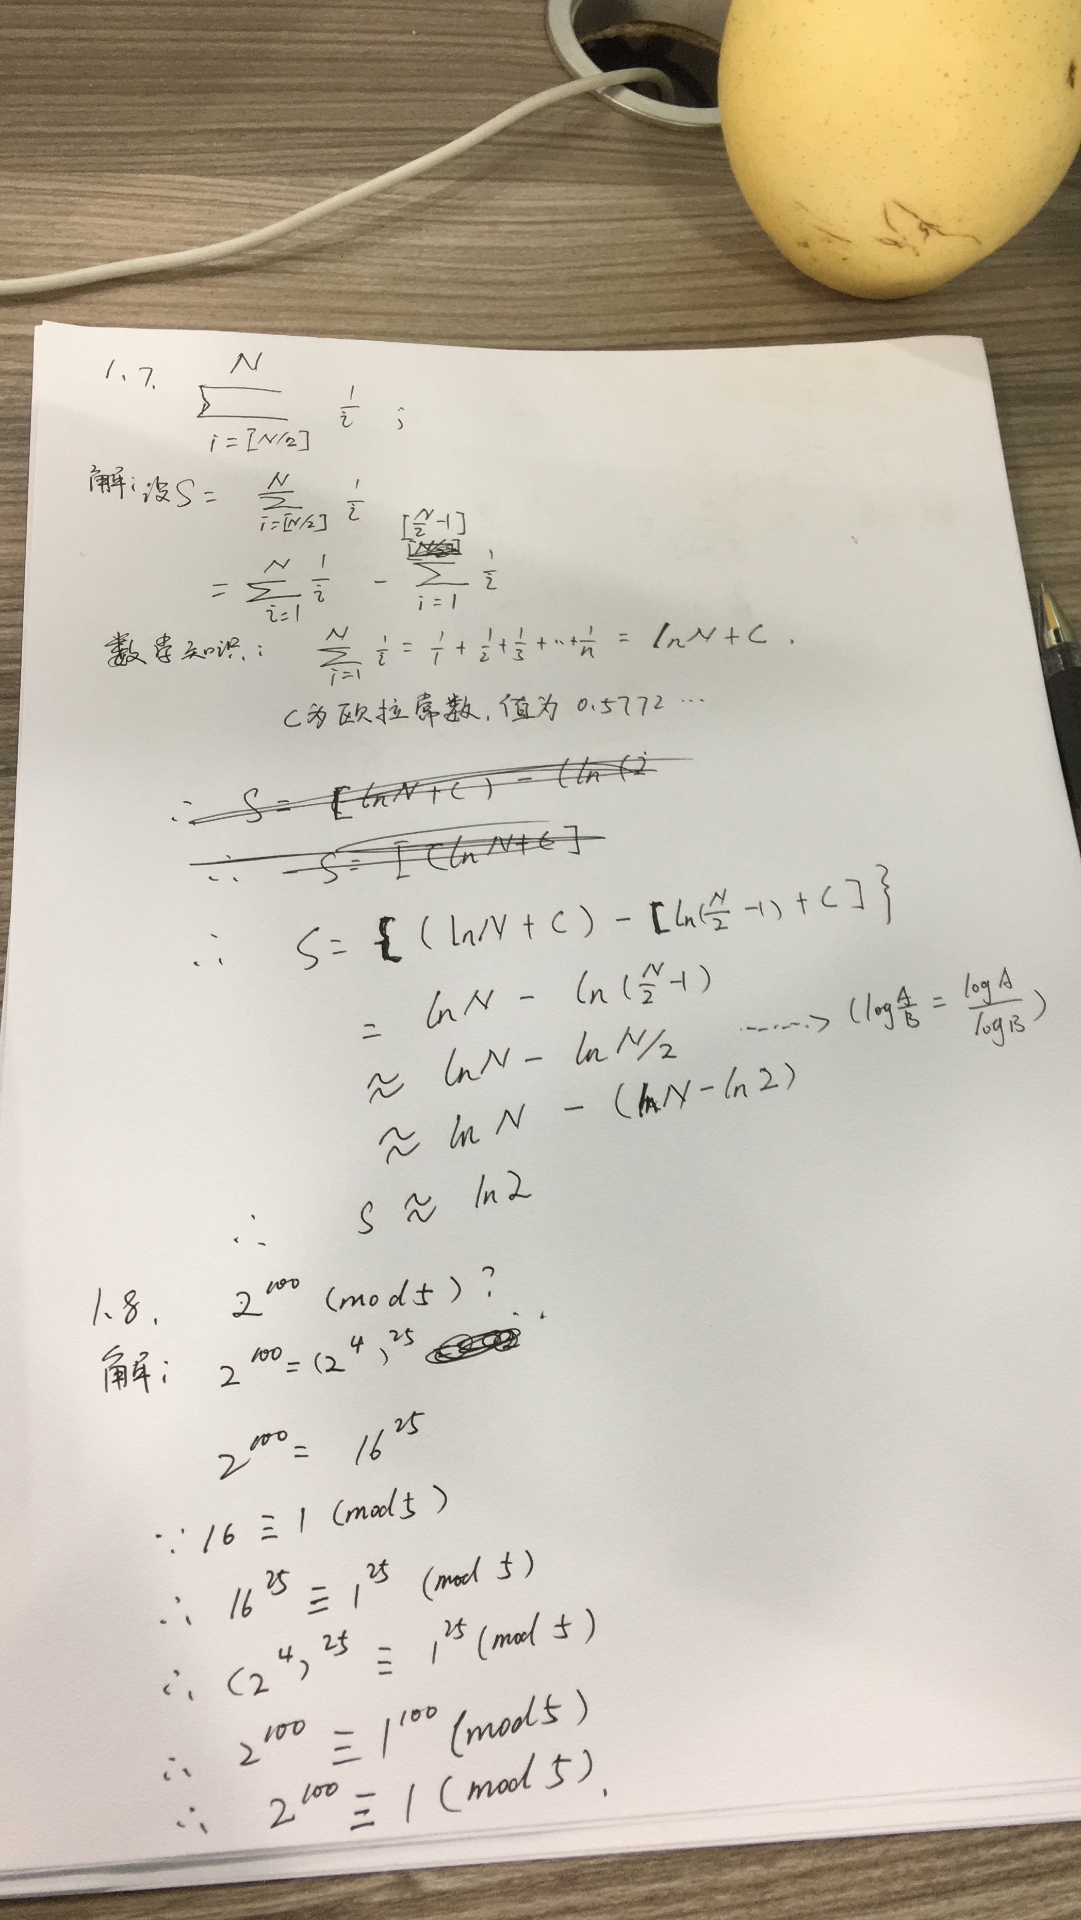 1.7. N∑i=[N/2] 1/i ;
解: 设S = N∑i=[N/2] 1/i
= N∑i=1 1/i - [N/2 -1]∑i=1 1/i
数学知识: N∑i=1 1/i = 1/1 + 1/2 + 1/3 + ··· + 1/n = lnN + C.
C为欧拉常数, 值为 0.5772 ···
∴ S = [(lnN + C) - (ln (2
∴ S = [(ln N + C]
∴ S = {(lnN + C) - [ln(N/2 -1) + C]}
= lnN - ln(N/2 -1)
≈ lnN - lnN/2 ······> (log A/B = logA/logB)
≈ lnN - (lnN - ln2)
∴ S ≈ ln2
1.8. 2^100 (mod 5) ?
解: 2^100 = (2^4)^25
2^100 = 16^25
∵ 16 ≡ 1 (mod 5)
∴ 16^25 ≡ 1^25 (mod 5)
∴ (2^4)^25 ≡ 1^25 (mod 5)
∴ 2^100 ≡ 1^100 (mod 5)
∴ 2^100 ≡ 1 (mod 5).